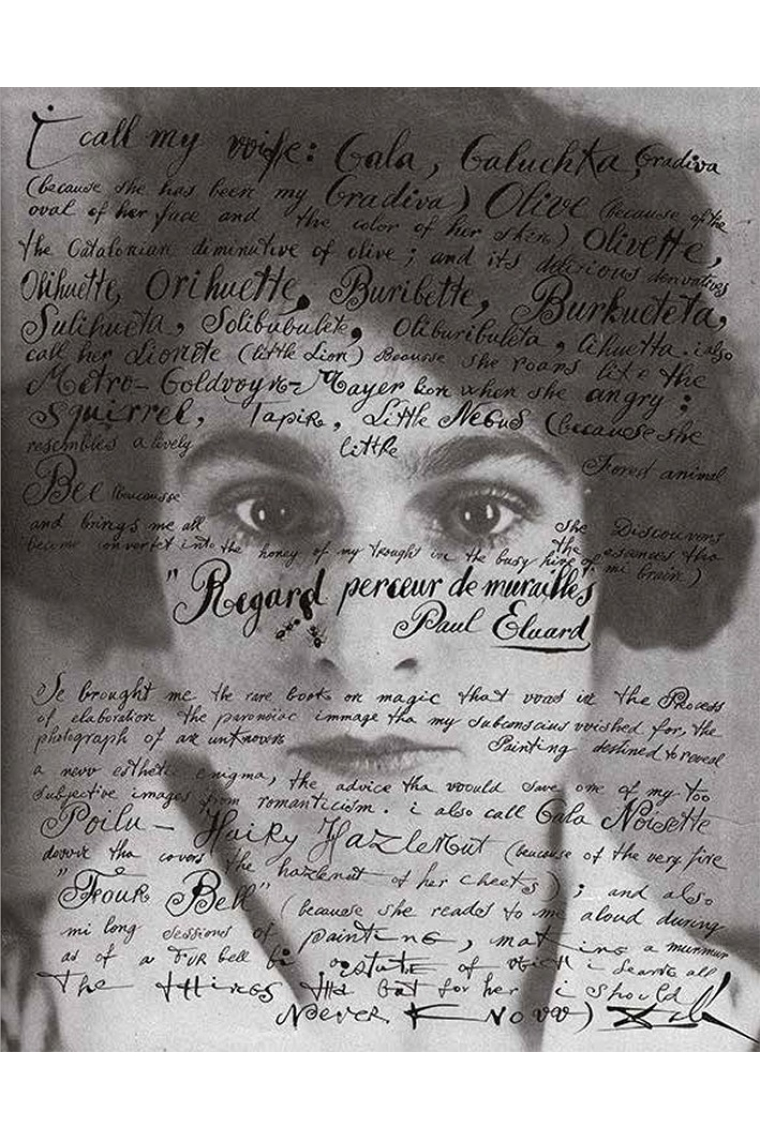 i call my wife: Gala, Galuchka, Gradiva
(because she has been my Gradiva) Olive (because of the
oval of her face and the color of her sken) Olivette,
the Catalonian diminutive of olive; and its delicious derivatives
Olihuette, Orihuette, Buribette, Burkueteta,
Sulihueta, Solibubulete, Oliburibuleta, Cihuetta. i also
call her Lionete (little Lion) Because she roars like the
Metro-Goldvoyn-Mayer lion when she angry;
Squirrel, Tapir, Little Negus (because she
resembles a lively little Forest animal
Bee
and brings me all the essences tha
become convertet into the honey of my trought in the busy hive of mi brain)
"Regard perceur de murailles
Paul Eluard
Se brought me the rare books on magic that voas in the Process
of elaboration the paronoiac immage tha my subconscius voished for, the
photograph of an unknowen Painting destined to reveal
a nevv esthetic enigma, the advice tha voould save one of my too
subjective images from romanticism. i also call Gala Noisette
Poilu - Hairy Hazlenut (beucause of the very fine
dovvn tha covers the hazlenut of her cheets); and also
"Four Bell" (because she reades to me aloud during
mi long sessions of painting, making a murmur
as of a FUR bell of i Learns all
the things tha but for her i should
never KNOVV)